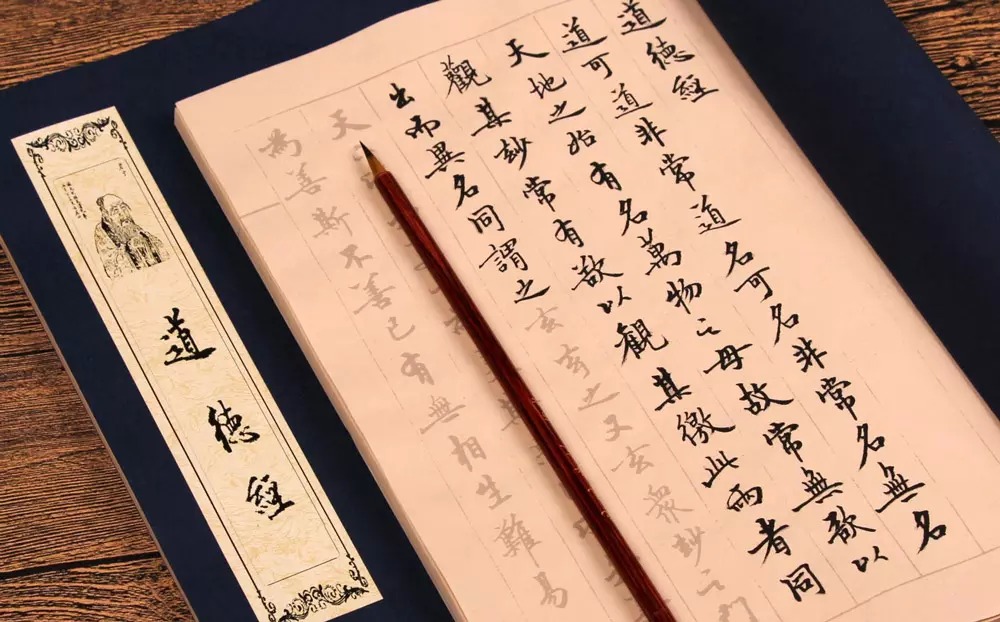 道德經
道可道非常道名可名非常名無名
天地之始有名萬物之母故常無欲以
觀其玅常有欲以觀其徼此兩者同
出而異名同謂之玄玄之又玄眾玅之門
天
為善斯不善已有無相生難易
道德經